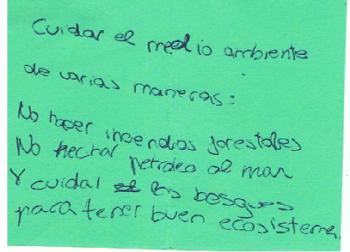 Cuidar el medio ambiente
de varias maneras:
No hacer incendios forestales
No hechar petroleo al mar
Y cuidal los bosques
para tener buen ecosistema.